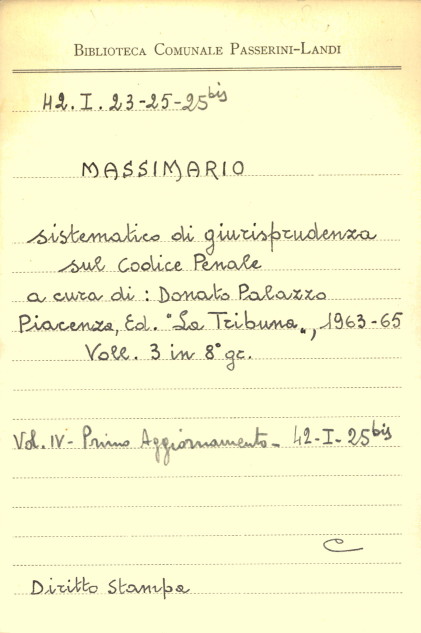 BIBLIOTECA COMUNALE PASSERINI-LANDI
42. I. 23-25-25 bis
MASSIMARIO
sistematico di giurisprudenza
sul Codice Penale
a cura di : Donato Palazzo
Piacenza, Ed. "La Tribuna", 1963-65
Voll. 3 in 8° gr.
Vol. IV - Primo Aggiornamento - 42-I-25 bis
C
Diritto Stampa